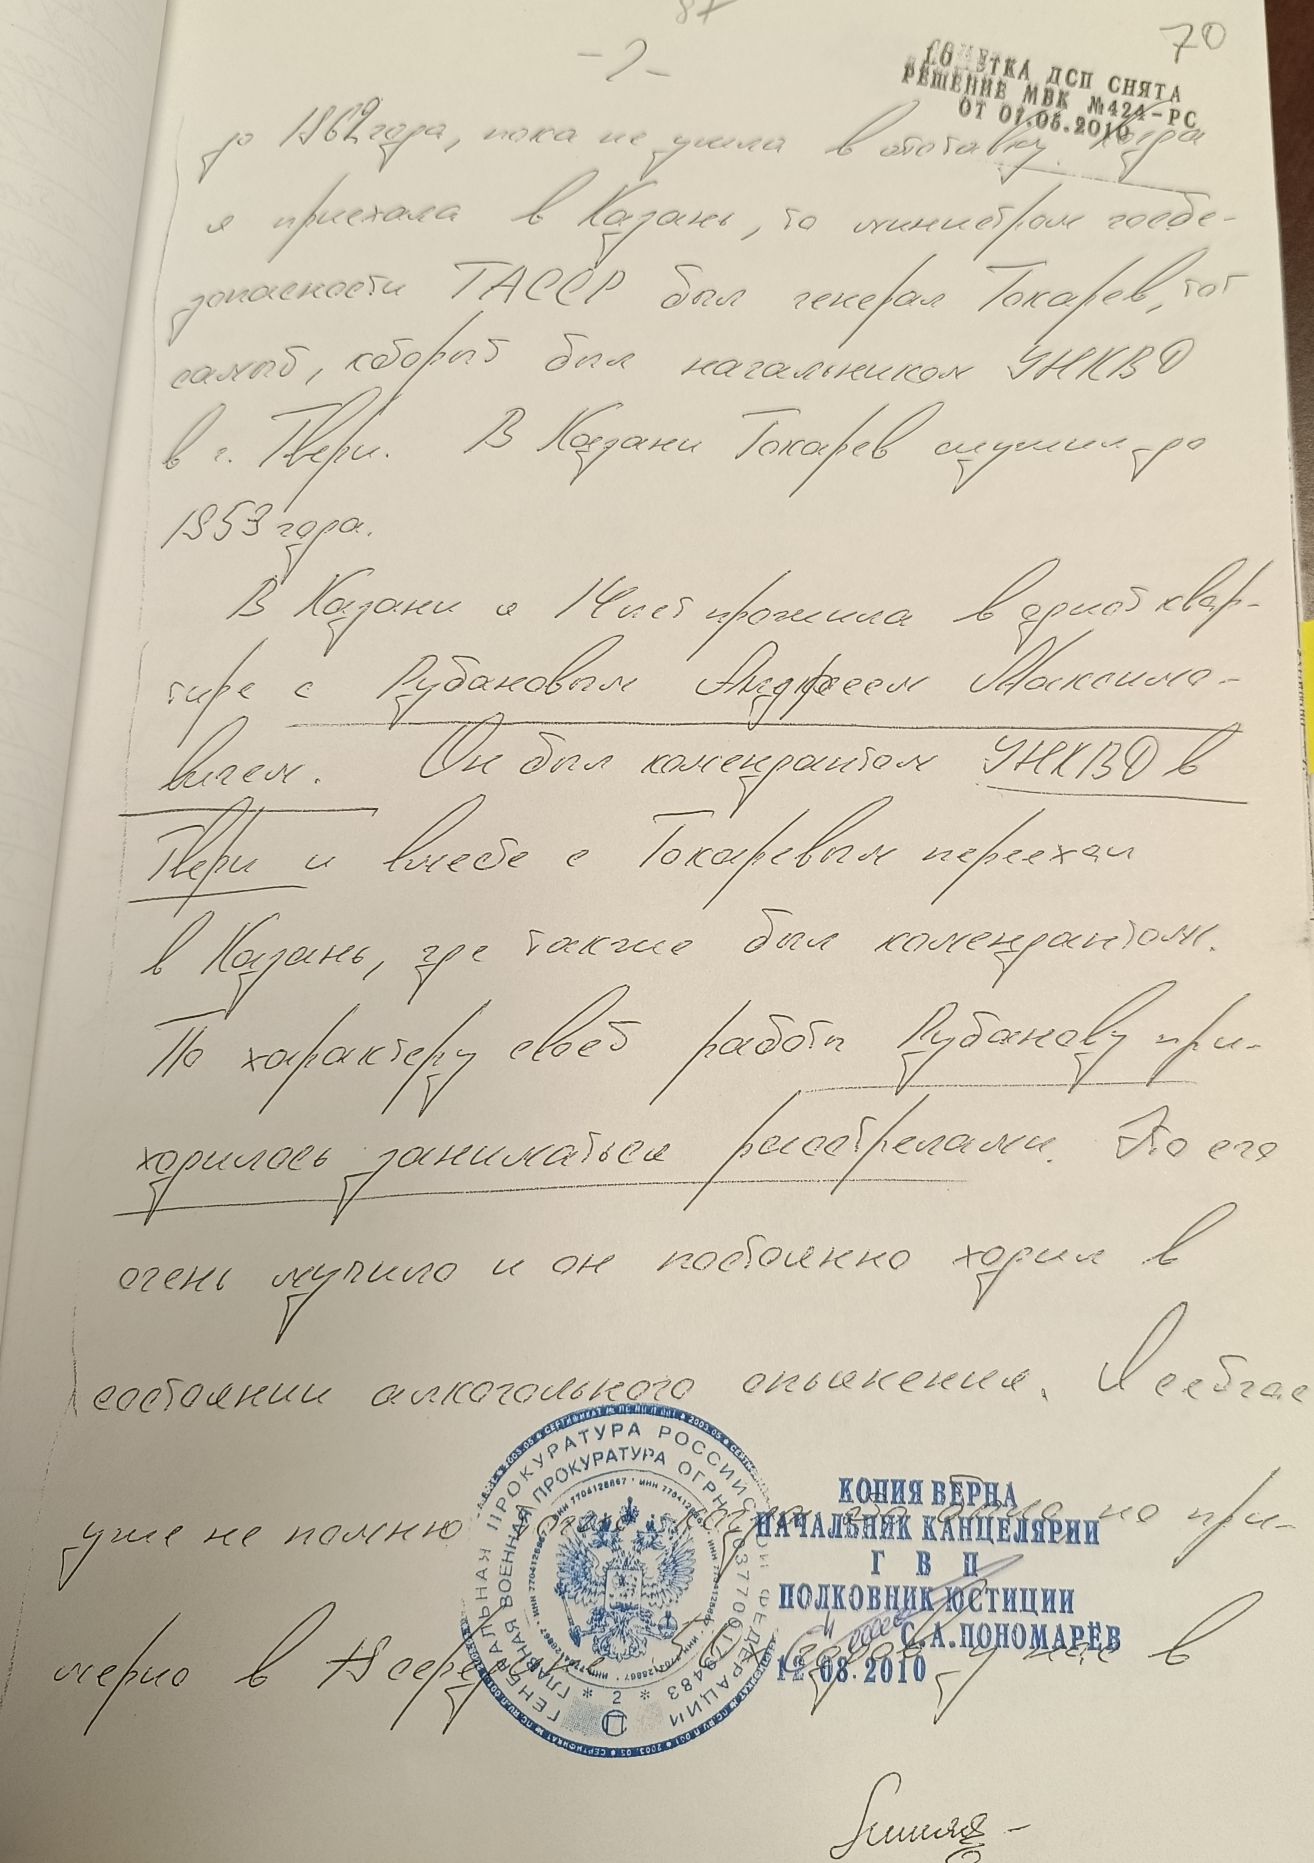 70
- 2 -
ПОМЕТКА ДСП СНЯТА
РЕШЕНИЕ МВК №424-РС
ОТ 01.06.2010
до 1962 года, пока не ушла в отставку. Когда
я приехала в Казань, то министром госбе-
зопасности ТАССР был генерал Токарев, тот
самый, который был начальником УНКВД
в г. Твери. В Казани Токарев служил до
1953 года.
В Казани я 14 лет прожила в одной квар-
тире с Рубановым Андреем Максимо-
вичем. Он был комендантом УНКВД в
Твери и вместе с Токаревым переехал
в Казань, где также был комендантом.
По характеру своей работы Рубанову при-
ходилось заниматься расстрелами. Это его
очень мучило и он постоянно ходил в
состоянии алкогольного опьянения. Я сейчас
уже не помню когда это было но при-
мерно в середине 50х годов у нас в
ГЕНЕРАЛЬНАЯ ПРОКУРАТУРА РОССИЙСКОЙ ФЕДЕРАЦИИ
ГЛАВНАЯ ВОЕННАЯ ПРОКУРАТУРА ОГРН 1037700179483
ИНН 7704126867
* 2 *
КОПИЯ ВЕРНА
НАЧАЛЬНИК КАНЦЕЛЯРИИ
Г В П
ПОЛКОВНИК ЮСТИЦИИ
С.А.ПОНОМАРЁВ
12.08.2010